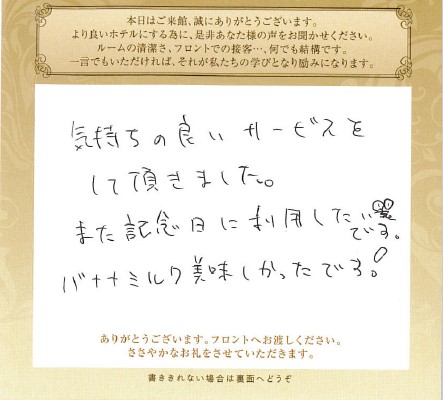 本日はご来館、誠にありがとうございます。
より良いホテルにする為に、是非あなた様の声をお聞かせください。
ルームの清潔さ、フロントでの接客…、何でも結構です。
一言でもいただければ、それが私たちの学びとなり励みになります。
気持ちの良いサービスを
して頂きました。
また記念日に利用したい
です。
バナナミルク美味しかったです!
ありがとうございます。フロントへお渡しください。
ささやかなお礼をさせていただきます。
書ききれない場合は裏面へどうぞ